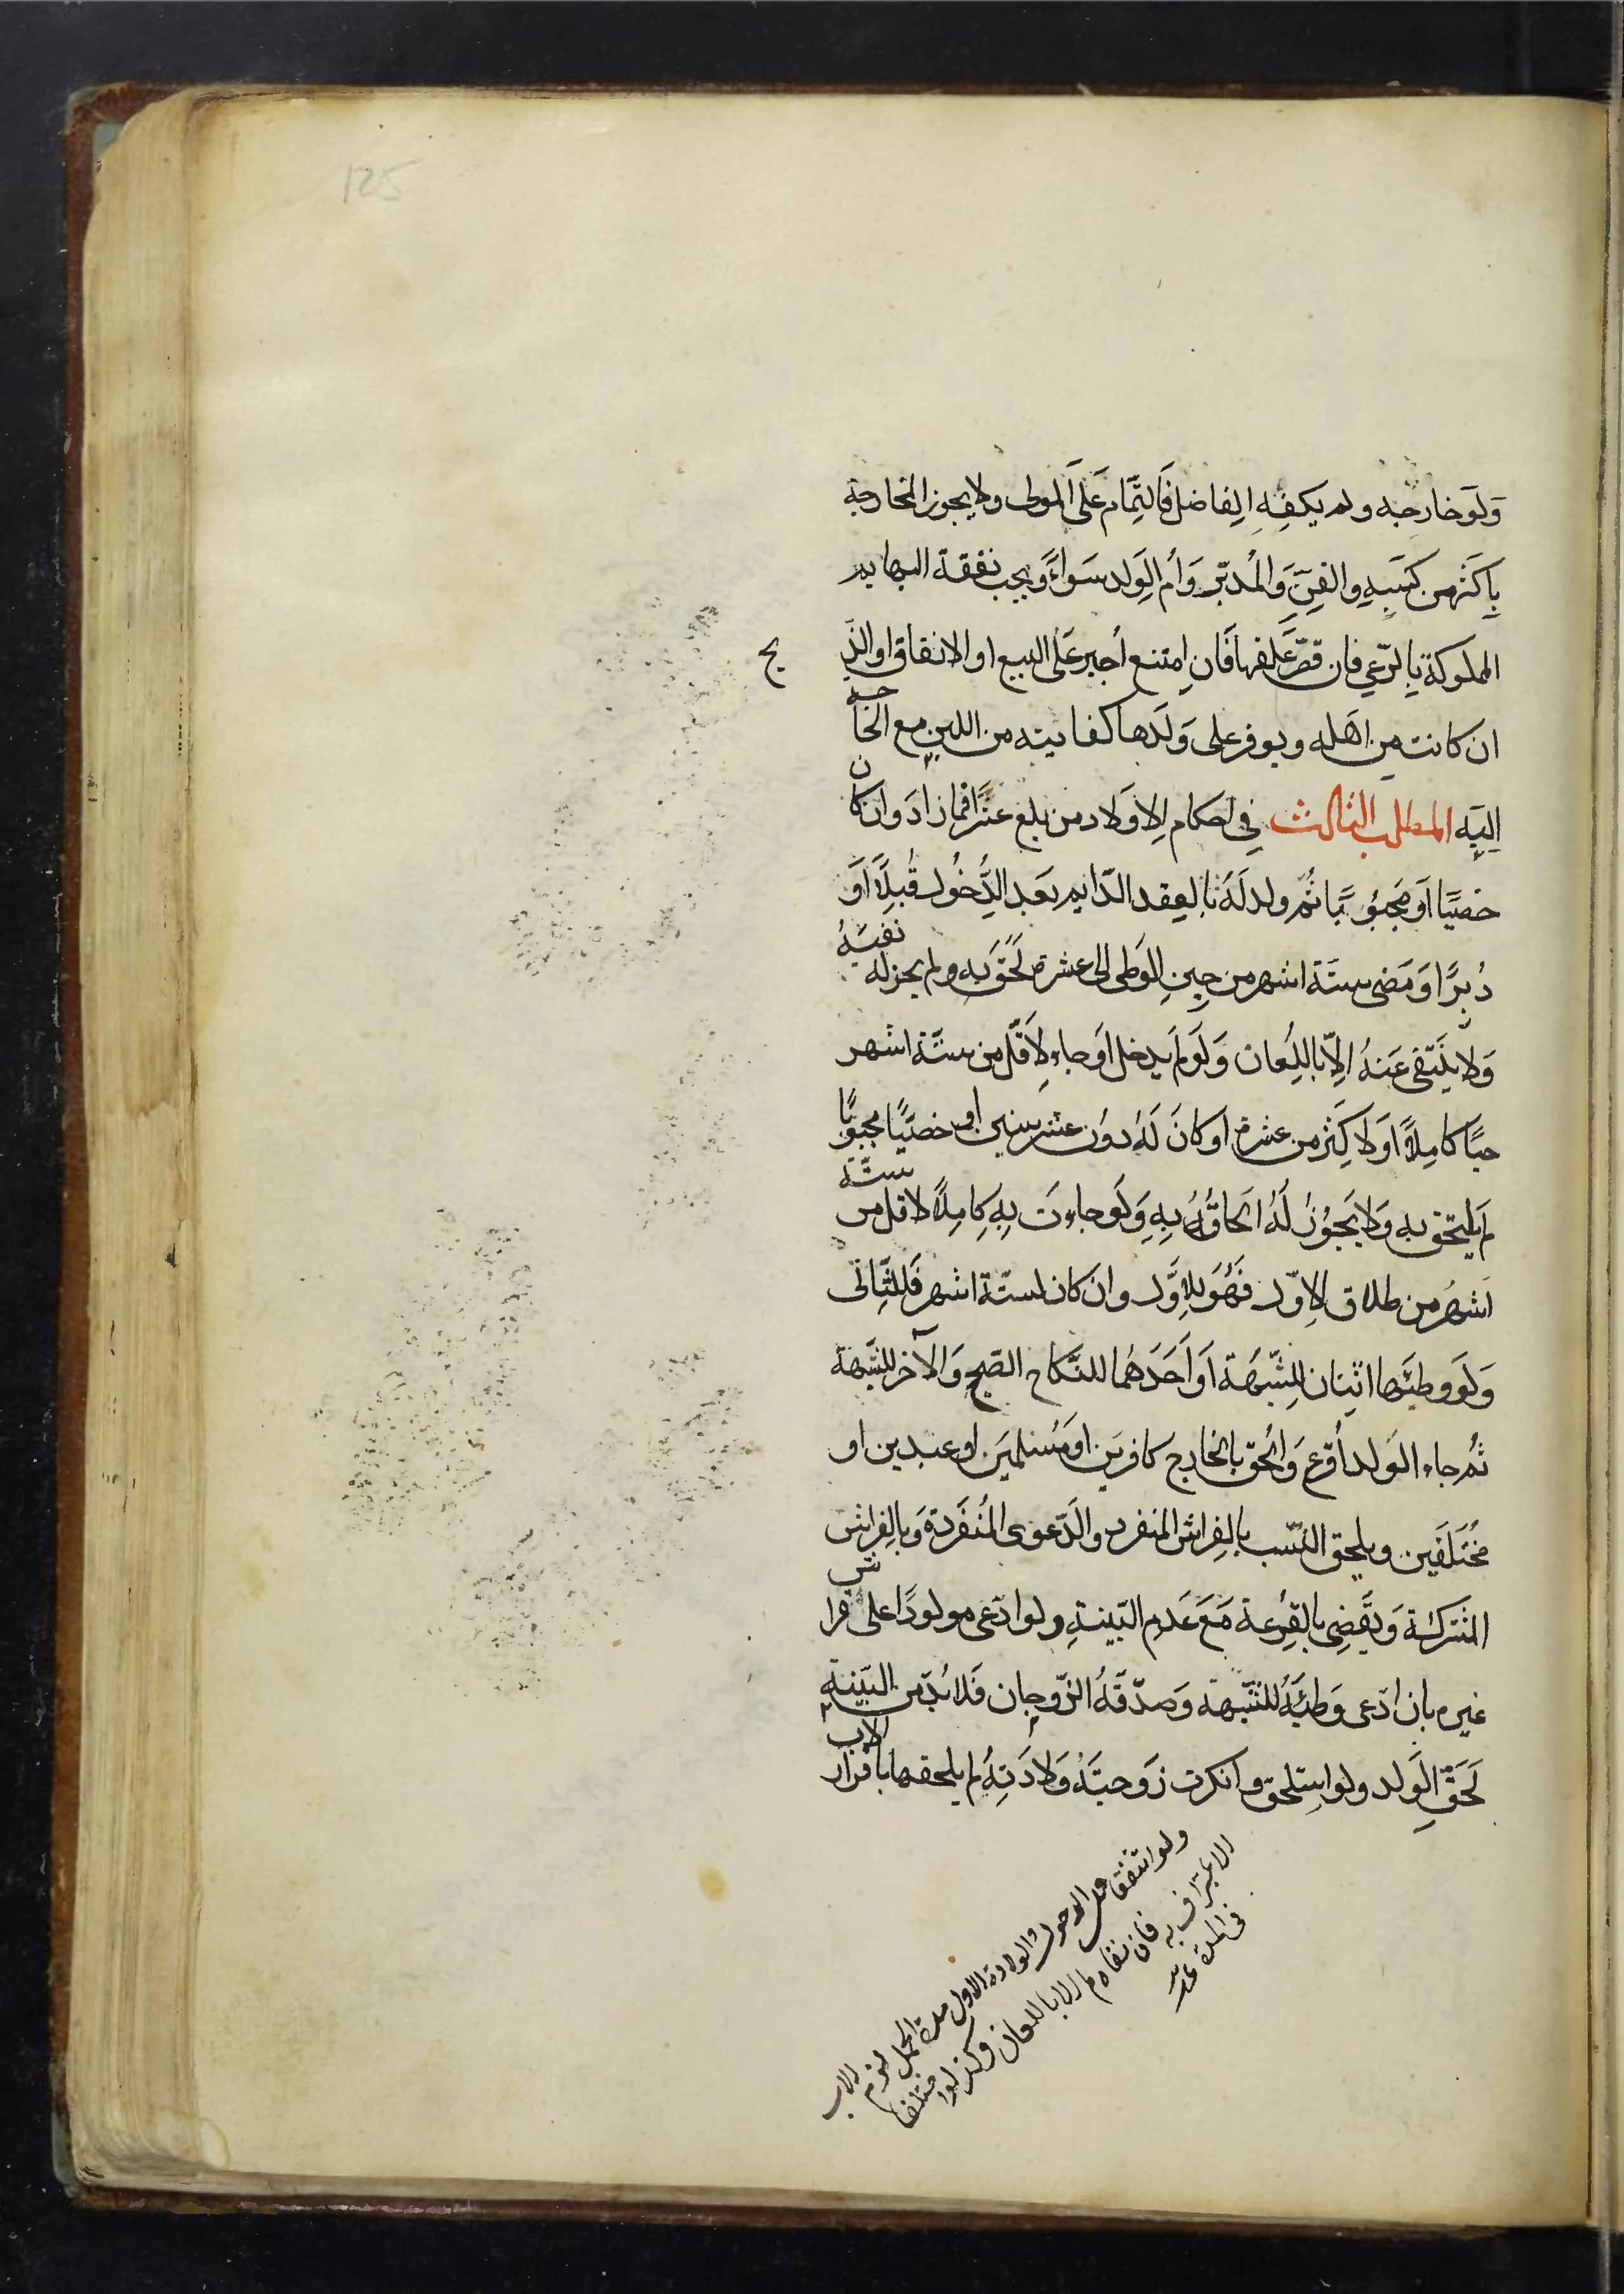 125
وَلَو خارجَه ولم يكفِهِ الفاضل فَالتِّمَام عَلَى المولى ولا يجوز المخارجة
بِاَكثَر من كسَبِهِ والقِنِّ وَالمُدبّر وَاُم الوَلد سَواءً وَيجب نفقة البهايم
المملوكة بِالرّعي فان قصّر عَلفها فَان امتنع اُجبر عَلى البيع او الانفاق او الذبح
ان كانت مِن اَهله ويوفر على وَلَدها كفايته من اللبن مع الحاجة
اليَه المطلب الثالث في احكام الاَولاد من بلغ عَشرًا فما زاد وَان كان
خصيًّا اَو مَجبُوبًا ثُم ولد لَهُ بالعقد الدّايم بعَد الدُّخُول قُبلًا اَو
دُبرًا وَمَضى ستّة اشهر من حِينِ الوَطى الى عشرة لَحَق بِه ولم يجز له نفيَهُ
وَلا ينَتفى عَنهُ اِلّا باللِعان وَلَو لم يدخل اَو جاء لِاَقلّ من ستّة اشهر
حيًّا كامِلًا اَو لاَكثر من عشرة او كانَ لَهُ دوُن عشر سنين او خصيًّا مجبوبًا
لَم يلتحق به وَلا يجَوُز لَهُ الحاقُهُ بِهِ وَلَو جاءت بِهِ كامِلًا لاقل من ستّة
اَشهُر من طلاق الاوّل فَهُوَ لِلاوَّل وان كان لستّة اشهر فَلِلثّانى
وَلَو وطئها اثنان للِشّبَهة اَو اَحَدهُما للنّكاح الصّحيح وَالآخر للشّبهة
ثُم جاء الوَلد اُقرع وَاُلحق بالخارج كافرَين او مُسلميَن او عبدين او
مُختَلفَين ويلحق النّسب بالفِراش المنفرد والدّعوى المُنفَردة وَبالفِراش
المشتركة وَيقَضِى بالقُرعة مَعَ عَدم البّينةِ ولو ادّعى مولودًا على فراش
غيره بان ادّعى وَطئَهُ للشّبهة وَصدّقَهُ الزّوجان فَلا بُدّ من البّينةِ
لَحَقّ الوَلد ولو استلحق وانكرت زَوجتهُ وَلادَتهُ لم يلحقها باقرار الاب
ولو اتفقا على الدخول والولادة الاول مدة الحمل لزم الاب
الاعتراف به فان نفاه لم الا باللعان وكذ لو اختلفا
فى المدة